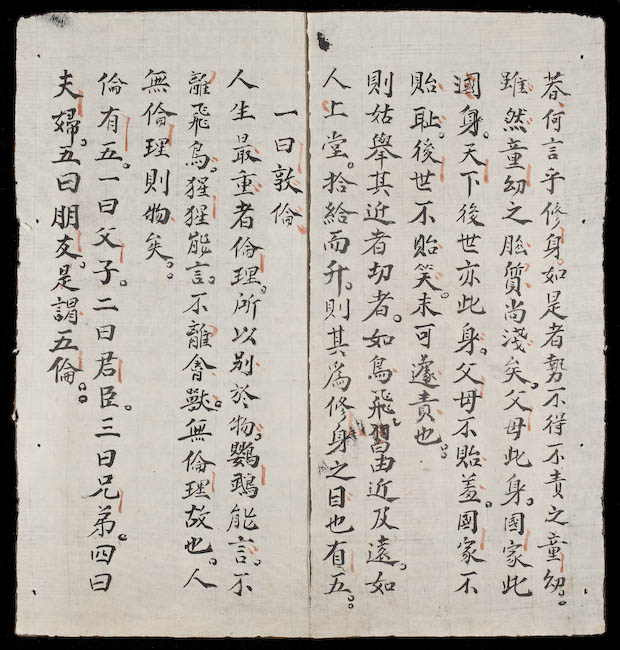 何言乎修身。如是者勢不得不責之童幼。
雖然童幼之脆質尚淺矣。父母此身。國家此
國身。天下後世亦此身。父母不貽羞。國家不
貽耻。後世不貽笑。未可遽責也。
則姑舉其近者切者。如鳥飛習由近及遠。如
人上堂。拾給而升。則其為修身之目也有五。
一曰敦倫
人生最重者倫理。所以別於物。鸚鵡能言。不
離飛鳥。猩猩能言。不離禽獸。無倫理故也。人
無倫理則物矣。
倫有五。一曰父子。二曰君臣。三曰兄弟。四曰
夫婦。五曰朋友。是謂五倫。